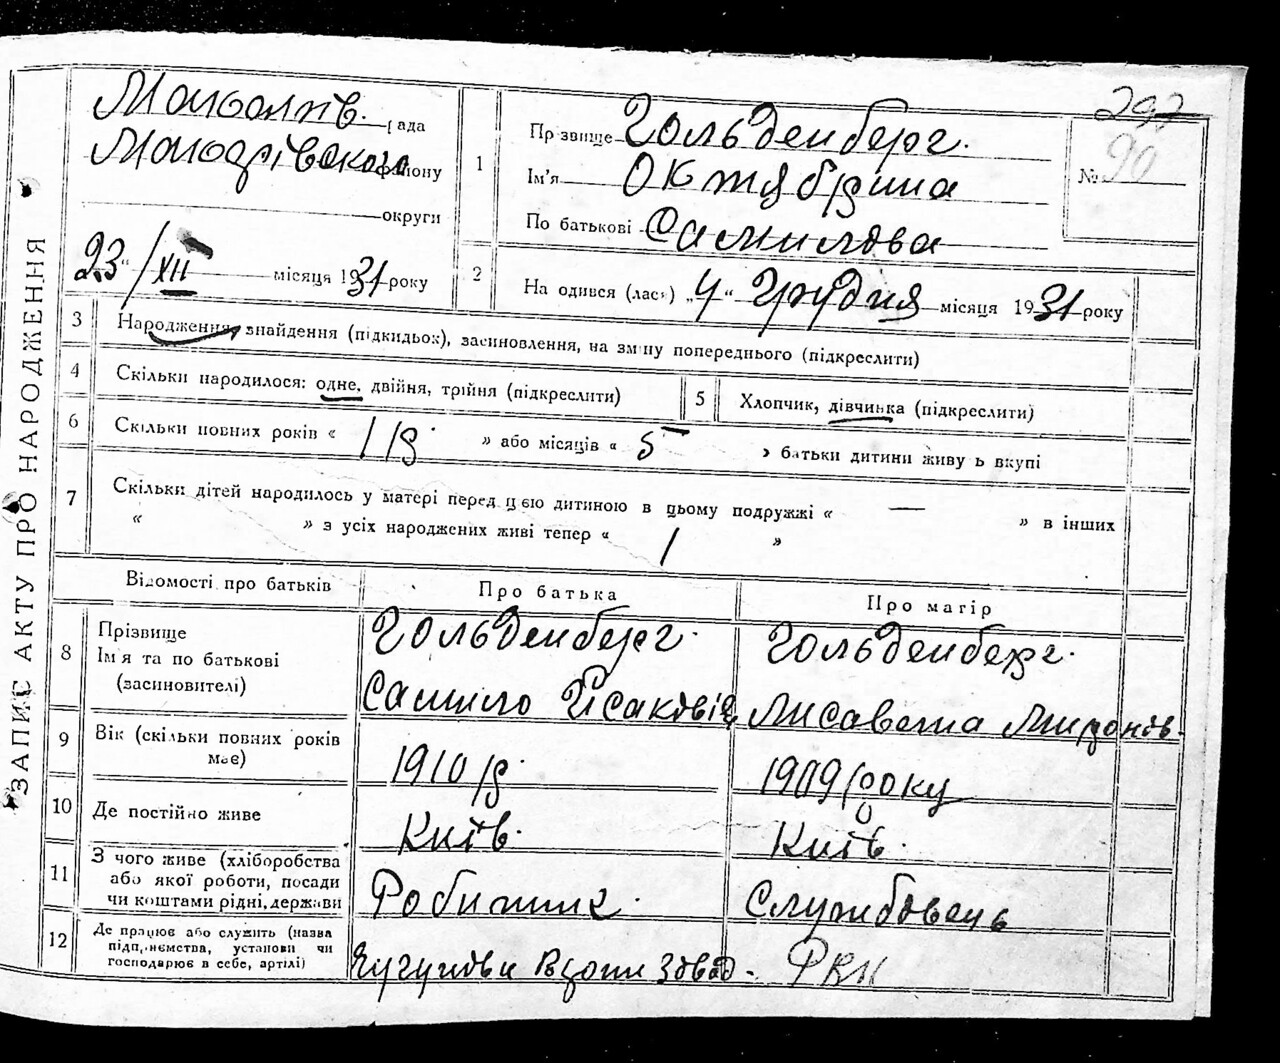 292
90
ЗАПИС АКТУ ПРО НАРОДЖЕННЯ
рада
Макарівского району
округи
"23"/XII місяця 1931 року
1
Прізвище Гольденберг.
Ім'я Октябрина
По батькові Самилова
№
2
Народився (лась) „4" Грудня місяця 1931 року
3
Народження, знайдення (підкидьок), засиновлення, на зміну попереднього (підкреслити)
4
Скільки народилося: одне, двійня, трійня (підкреслити)
5
Хлопчик, дівчинка (підкреслити)
6
Скільки повних років « 1 р. » або місяців « 5 » батьки дитини живуть вкупі
7
Скільки дітей народилось у матері перед цією дитиною в цьому подружжі « — » в інших
« » з усіх народжених живі тепер « 1 »
Відомості про батьків
Про батька
Про матір
8
Прізвище
Ім'я та по батькові
(засиновителі)
Гольденберг.
Самило Йсаковіч
Гольденберг.
Лисавета Миронів.
9
Вік (скільки повних років
має)
1910 р
1909 року
10
Де постійно живе
Київ.
Київ.
11
З чого живе (хліборобства
або якої роботи, посади
чи коштами рідні, держави
Робитник.
Службовець
12
Де працює або служить (назва
підприємства, установи чи
господарює в себе, артілі)
Завод.
РВК